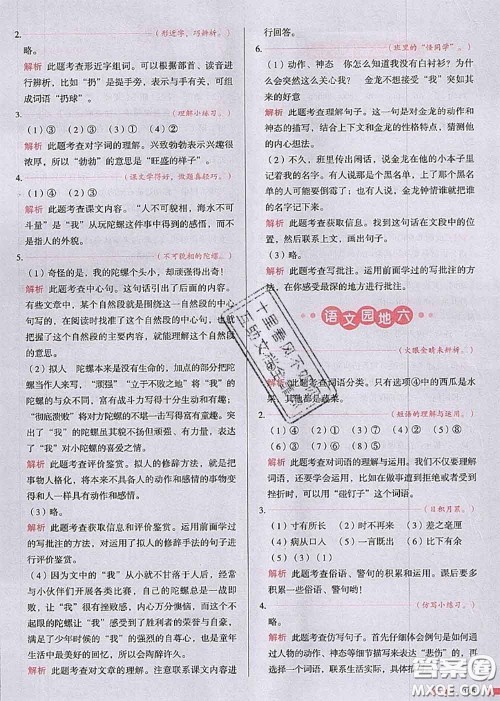 2.
(形近字，巧辨析。)
略。
解析 此题考查形近字组词。可以根据部首、读音进
行辨析，比如“扔”是提手旁，表示与手有关，可组
成词语“扔球”。
3.
(理解小练习。)
(1) ③ (2) ④ (3) ② (4) ①
解析 此题考查对字词的理解。兴致勃勃表示兴趣很
浓厚，所以“勃勃”的意思是“旺盛的样子”。
4.
(课文学得好，做题真轻巧。)
(1) ④ (2) ①
解析 此题考查课文内容。“人不可貌相，海水不可
斗量”是“我”从玩陀螺这件事中得到的感悟，而不
是指外形。
5.
(不可貌相的陀螺。)
(1) 奇怪的是，我的陀螺个头小，却顽强得出奇！
解析 此题考查中心句。这句话引出了后面的内容。
有些文章中，某个自然段是围绕这个自然段的中心
句写的，在阅读时找出了这个自然段的中心句，就
能准确理解这个自然段的主要内容。
(2) 略。
(3) 拟人 陀螺本来是没有生命的，加想的部分把陀螺
当做人来写，“顽强”“立于不败之地”其实
都是作者加上去的，富有战斗力写得十分有童趣；
“彻底溃败”将“我”的不堪一击写得富有童趣，突
出了“我”的陀螺虽其貌不扬但顽强、有力，表达了
“我”对陀螺的喜爱之情。
解析 此题考查评价鉴赏。拟人的修辞方法，就是把
事物人格化，将本来不具备人的动作和情感的事物
变成和人一样具有动作和情感。
解析 此题考查获取信息和评价鉴赏。运用前面学过
的批注的方法，对运用了拟人修辞手法的句子进行
评价鉴赏。
(4) 因为文中的“我”从小就不甘落于人后，经常
与小伙伴们进行各类比赛，自己的陀螺总是一战即
败，让“我”很受打击，但这次意外的决战，这个不
起眼的陀螺却让“我”享受到了胜利者的荣誉与自豪，
满足了年少时候“我”的强烈的自尊心，也是童年
生活的美好回忆，所以会陶醉许久。
解析 此题考查对文章的理解。注意联系课文内容进
行回答。
6.
(班里的“怪同学”。)
(1) 动作、神态 你怎么知道我没有白衬衫？为什
么会突然这么关心我？ 金龙不想接受“我”突如其
来的好意
解析 此题考查理解句子。这一句是对金龙的动作和
神态的描写，联系上下文和金龙的性格特点，猜测他
的内心想法。
(2) 不久，班里传出闲话，说金龙在他的小本子里
记着我们的名字。有人说那是个黑名单，上了那个黑
名单的人可能要倒霉；金龙钟情谁就把谁的名字记
下来。
解析 此题考查获取信息。找到这句话在文段中的位
置，然后根据前后文的内容回答。
(3) 略。
解析 此题考查写批注。运用前面学过的写批注的方
法，在你感受最深的地方进行批注。
语文园地六
1.
(火眼金睛来辨析。)
④
解析 此题考查词语分类。只有选项④中的西瓜是水
果，其他都是蔬菜。
2.
(短语的理解与运用。)
(1) ⑦ (2) ⑥ (3) ④ (4) ② (5) ①
(6) ⑧ (7) ③ (8) ⑤
解析 此题考查对词语的理解与运用。除了理解词语，
还要学会运用，比如在做事遭到拒绝或者受到
挫折时，可以用“碰钉子”这个词语。
3.
(日积月累。)
(1) 寸有所长 (2) 时不再来 (3) 差之毫厘
(4) 病从口入 (5) 一言既出 (6) 比下有余
(5) (3) (1)
解析 此题考查俗语、警句的积累和运用。要积累一
些俗语、警句，并能灵活运用。
4.
(仿写小练习。)
略。
解析 此题考查仿写句子。首先仔细体会例句是如何通
过人物动作、神态等细节描写来表达“悲伤”的，再
选择一个词语，联系生活实际，具体描
答案圈
MXQE.COM